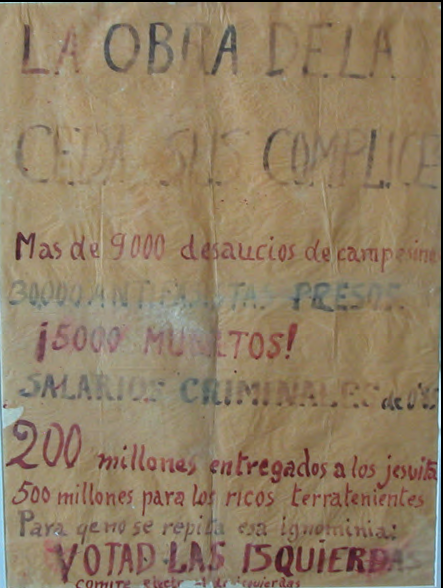 LA OBRA DE LA
CEDA SUS COMPLICE
Mas de 9000 desaucios de campesino
30.000 ANTIFASISTAS PRESOS
¡5000 MUERTOS!
SALARIOS CRIMINALES de
200 millones entregados a los jesuita
500 millones para los ricos terratenientes
Para qe no se repita esa ignominia:
VOTAD LAS ISQUIERDAS
comite de isquierdas